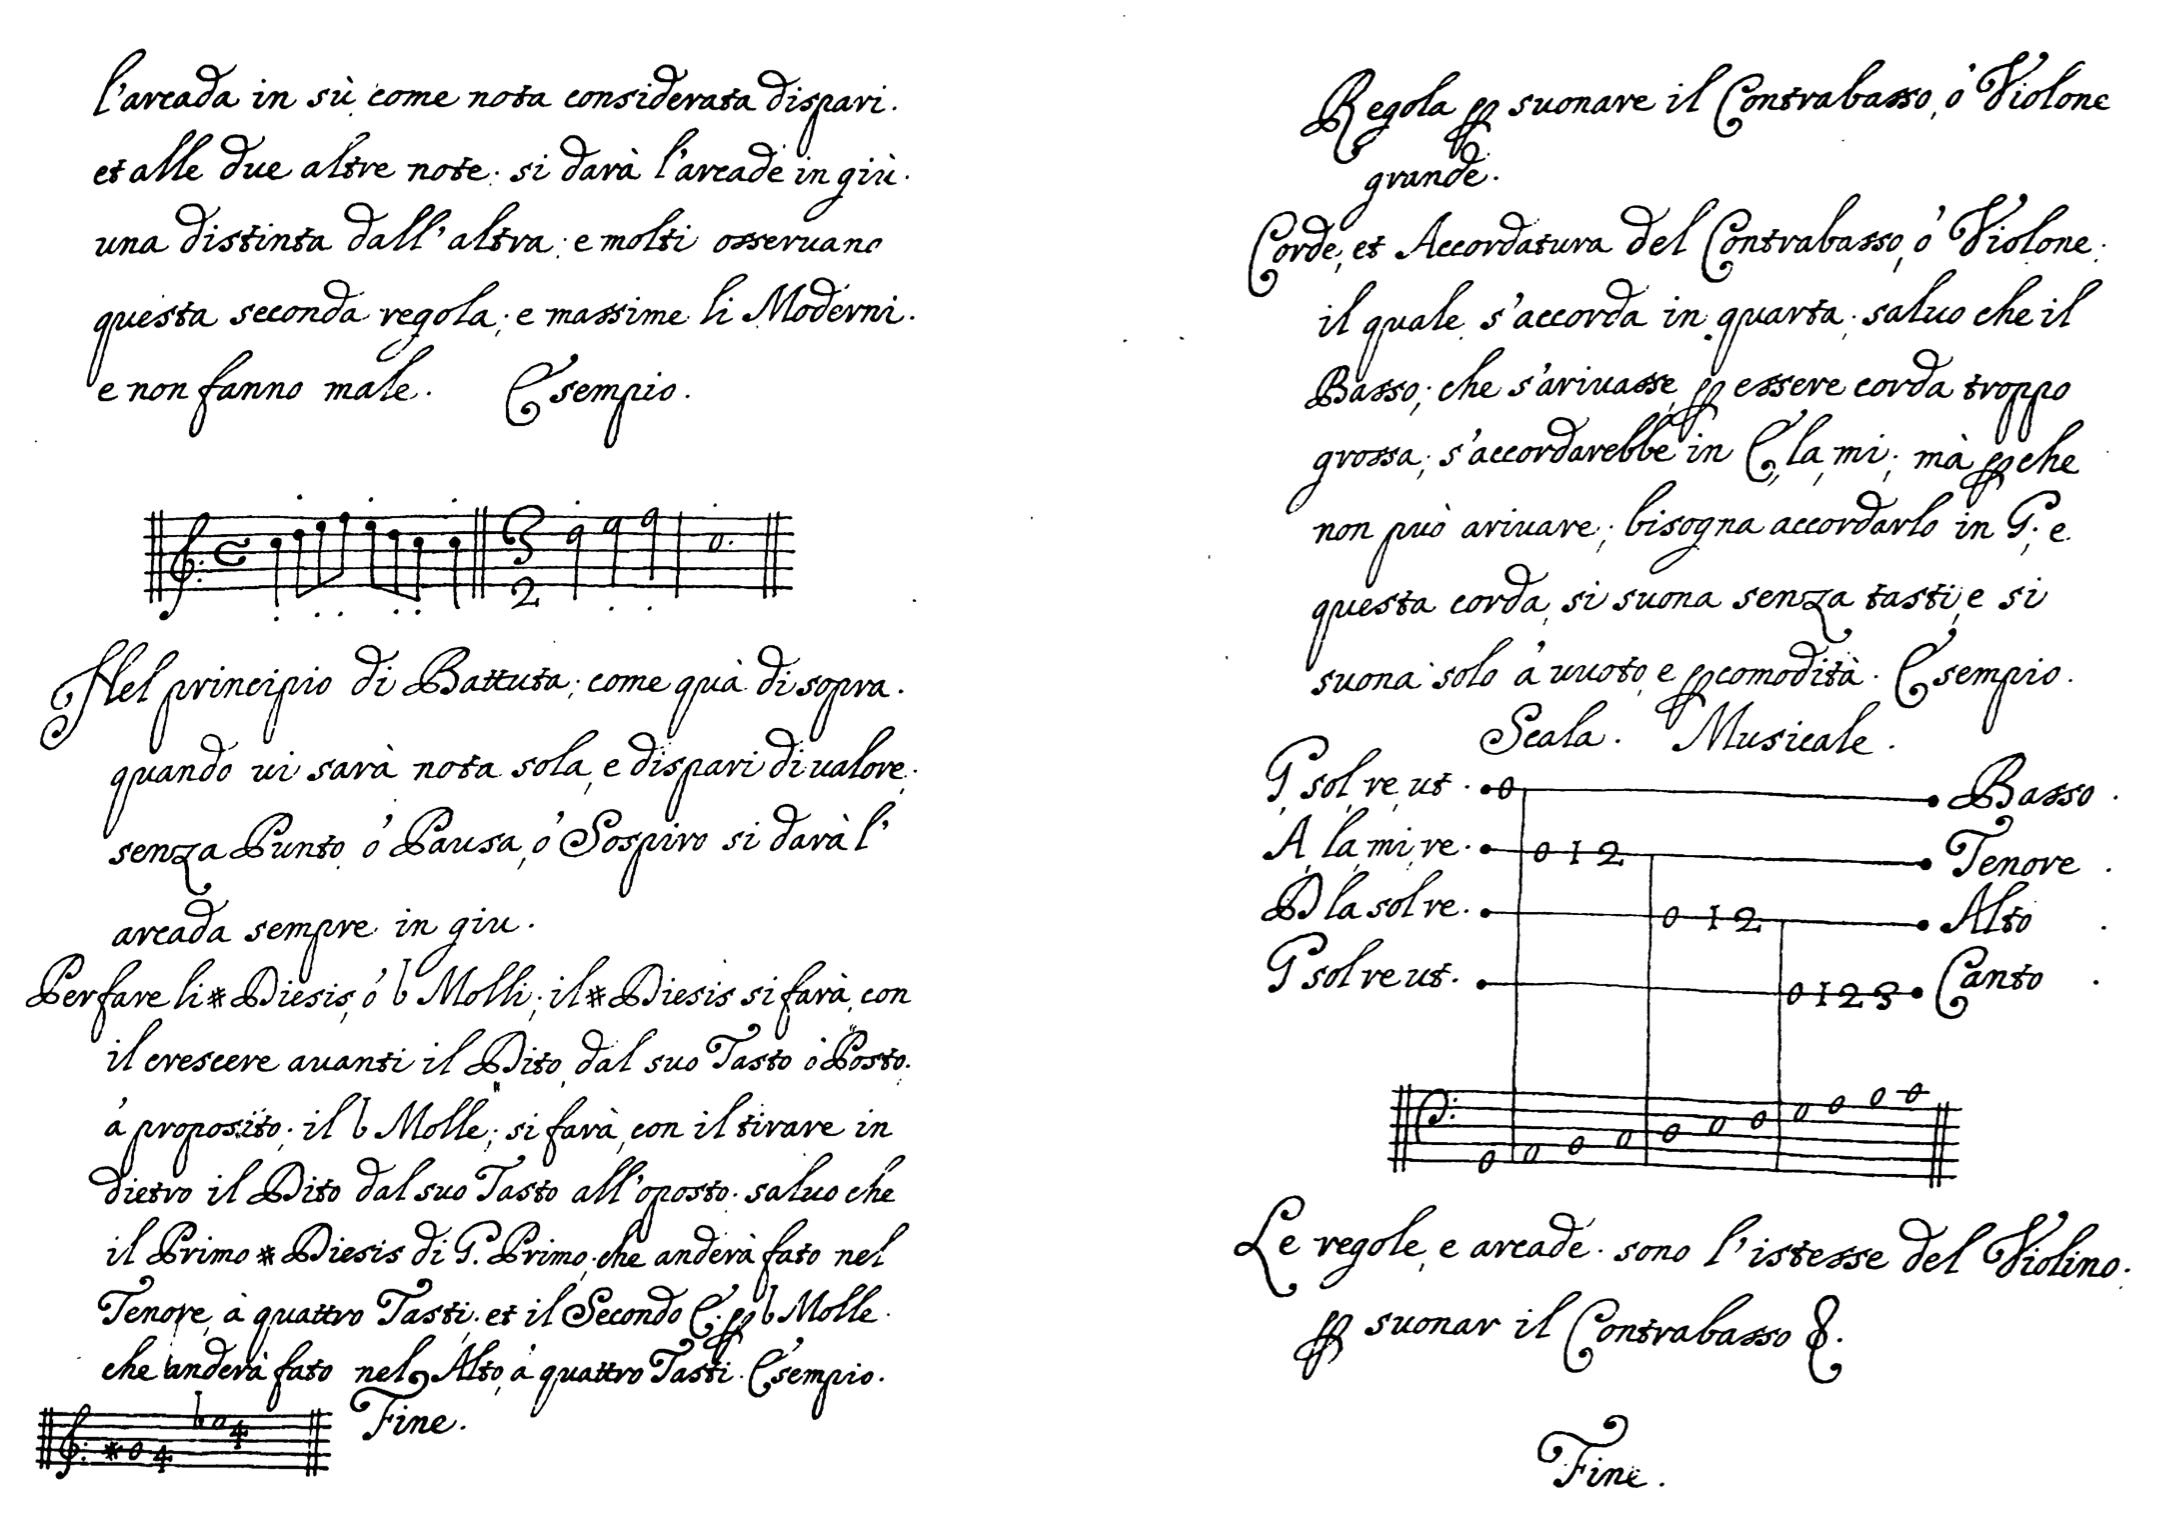 l'arcada in sù come nota considerata dispari.
et alle due altre note. si darà l'arcade in giù.
una distinta dall'altra; e molti osseruano
questa seconda regola; e massime li Moderni.
e non fanno male. Esempio.
C 3
2
Nel principio di Battuta; come quà di sopra.
quando ui sarà nota sola, e dispari di ualore;
senza Punto, ó Pausa, ó Sospiro si darà l'
arcada sempre in giu.
Per fare li # Diesis, ó b Molli; il # Diesis si farà, con
il crescere auanti il Dito, dal suo Tasto ò Posto.
á proposito; il b Molle; si farà, con il tirare in
dietro il Dito dal suo Tasto all'oposto. saluo che
il Primo # Diesis di G. Primo, che anderà fato nel
Tenore, à quattro Tasti. et il Secondo E. p b Molle.
che anderà fato nel Alto, á quattro Tasti. Esempio.
# 4 b 4
Fine.
Regola p suonare il Contrabasso, ó Violone
grande.
Corde, et Accordatura del Contrabasso, ó Violone.
il quale s'accorda in quarta; saluo che il
Basso; che s'ariuasse, p essere corda troppo
grossa; s'accordarebbe in E, la, mi; mà pche
non può ariuare; bisogna accordarlo in G; e
questa corda, si suona senza tasti, e si
suona solo á uuoto, e p comodità. Esempio.
Scala. Musicale.
G, sol, re, ut. 0 Basso.
A, la, mi, re. 0 1 2 Tenore.
D la sol re. 0 1 2 Alto.
G sol re ut. 0 1 2 3 Canto.
Le regole, e arcade. sono l'istesse del Violino.
p suonar il Contrabasso &.
Fine.